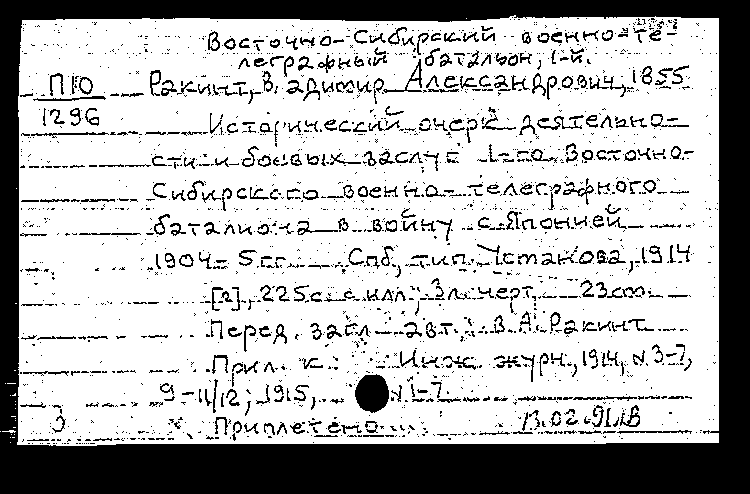 Восточно-Сибирский военно-те-
леграфный батальон, 1-й.
П10 Ракинт, Владимир Александрович, 1855
1296
Исторический очерк деятельно-
сти и боевых заслуг 1-го Восточно-
Сибирского военно-телеграфного
баталиона в войну с Японией
1904-5 гг. Спб, тип. Усманова, 1914
[2], 225 с. с илл; 3 л. черт. 23 см.
Перед. загл. авт.: В.А. Ракинт
Прил. к: Инж. журн., 1914, N 3-7,
9-11/12; 1915, N 1-7
Приплетено... 13.02.91